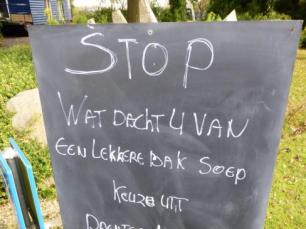 STOP
WAT DACHT U VAN
EEN LEKKERE BAK SOEP
KEUZE UIT